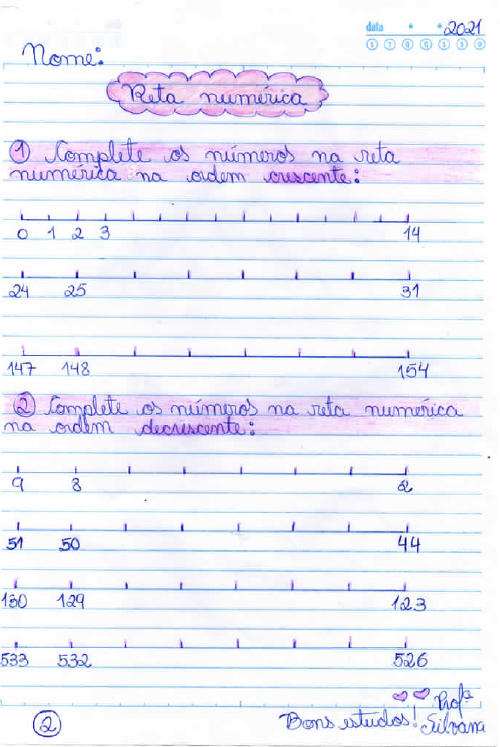 data * * 2021
D S T Q Q S S
Nome:
Reta numérica
① Complete os números na reta
numérica na ordem crescente:
0 1 2 3 14
24 25 31
147 148 154
② Complete os números na reta numérica
na ordem decrescente:
9 8 2
51 50 44
130 129 123
533 532 526
②
Bons estudos! Profª
Silvana